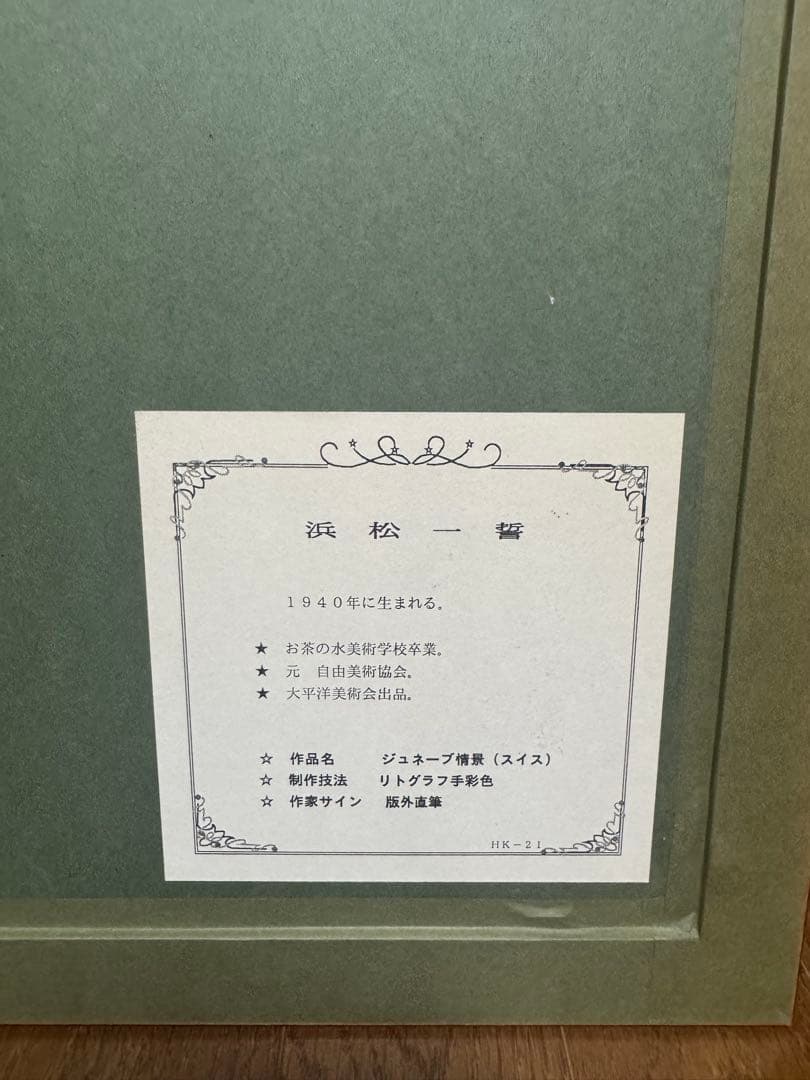 浜松一誓
1940年に生まれる。
★ お茶の水美術学校卒業。
★ 元 自由美術協会。
★ 大平洋美術会出品。
☆ 作品名 ジュネーブ情景（スイス）
☆ 制作技法 リトグラフ手彩色
☆ 作家サイン 版外直筆
HK－21